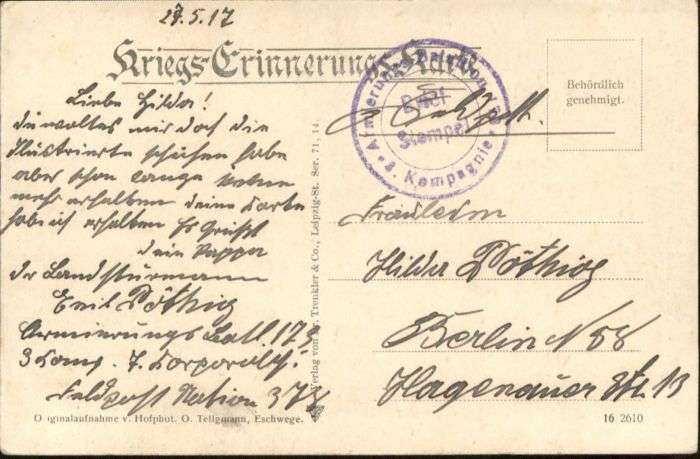 29.5.17
Kriegs-Erinnerungs-Karte
Behördlich
genehmigt.
Armierungs-Bataillon
Brief
stempel
* 3. Kompagnie *
Feldpost.
Liebe Hilda!
du woltes mir doch die
Ilustrierte schiken habe
aber schon lange keine
mehr erhalten deine Karte
hab ich erhalten Es Grüßt
dein Pappa
der Landstürmann
Emil Pöthig
Armierungs Batl. 173
3 Komp. 7. Korporals.
Feldpost Station 373
Fräulein
Hilda Pöthig
Berlin N 58
Hagenauer Str. 13
Verlag von Dr. Trenkler & Co., Leipzig-St. Ser. 71, 14.
Originalaufnahme v. Hofphot. O. Tellgmann, Eschwege.
16 2610